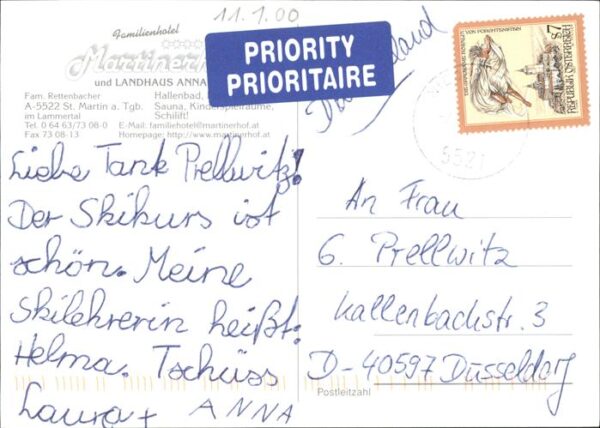 11.1.00
Familienhotel
Martinerhof
und LANDHAUS ANNA
Fam. Rettenbacher
Hallenbad,
A-5522 St. Martin a. Tgb.
Sauna, Kinderspielräume,
im Lammertal
Schilift!
Tel. 0 64 63/73 08-0
E-Mail: familienhotel@martinerhof.at
Fax 73 08-13
Homepage: http://www.martinerhof.at
PRIORITY
PRIORITAIRE
7S
REPUBLIK ÖSTERREICH
5521
Liebe Tante Prellwitz!
Der Skikurs ist
schön. Meine
Skilehrerin heißt:
Helma. Tschüss
Laura + ANNA
An Frau
G. Prellwitz
Kallenbachstr. 3
D-40597 Düsseldorf
Postleitzahl